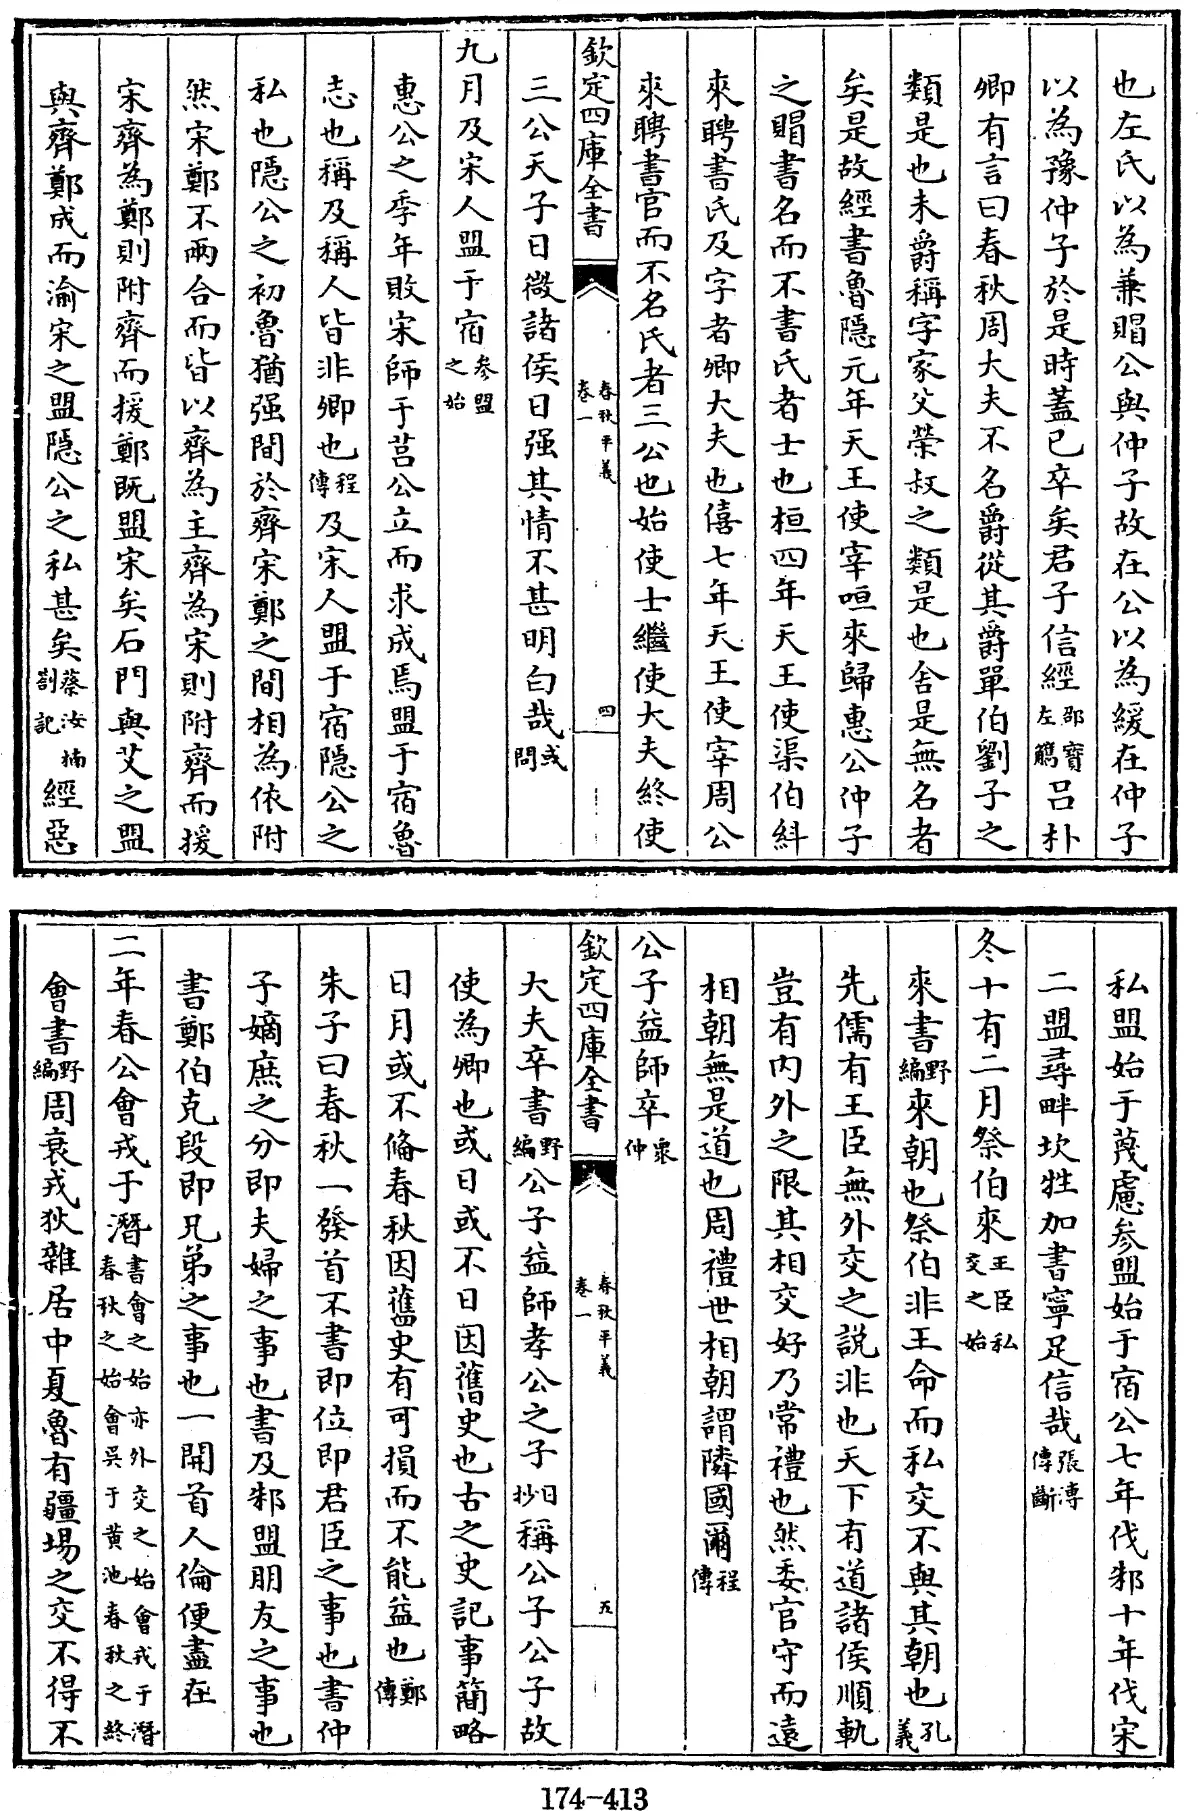 也左氏以為兼賵公與仲子故在公以為緩在仲子
以為豫仲子於是時蓋已卒矣君子信經邵寶左觿呂朴
卿有言曰春秋周大夫不名爵從其爵單伯劉子之
類是也未爵稱字家父榮叔之類是也舍是無名者
矣是故經書魯隱元年天王使宰咺來歸惠公仲子
之賵書名而不書氏者士也桓四年天王使渠伯糾
來聘書氏及字者卿大夫也僖七年天王使宰周公
來聘書官而不名氏者三公也始使士繼使大夫終使
欽定四庫全書 春秋平義 卷一 四
三公天子日微諸侯日强其情不甚明白哉或問
九月及宋人盟于宿參盟之始
惠公之季年敗宋師于莒公立而求成焉盟于宿魯
志也稱及稱人皆非卿也程傳及宋人盟于宿隱公之
私也隱公之初魯猶强間於齊宋鄭之間相為依附
然宋鄭不兩合而皆以齊為主齊為宋則附齊而援
宋齊為鄭則附齊而援鄭既盟宋矣石門與艾之盟
與齊鄭成而渝宋之盟隱公之私甚矣蔡汝楠劄記經惡
私盟始于蔑慮參盟始于宿公七年伐邾十年伐宋
二盟尋畔坎牲加書寧足信哉張溥傳斷
冬十有二月祭伯來王臣私交之始
來書野編來朝也祭伯非王命而私交不與其朝也孔義
先儒有王臣無外交之説非也天下有道諸侯順軌
豈有内外之限其相交好乃常禮也然委官守而遠
相朝無是道也周禮世相朝謂隣國爾程傳
公子益師卒衆仲
欽定四庫全書 春秋平義 卷一 五
大夫卒書野編公子益師孝公之子日抄稱公子公子故
使為卿也或日或不日因舊史也古之史記事簡略
日月或不備春秋因舊史有可損而不能益也鄭傳
朱子曰春秋一發首不書即位即君臣之事也書仲
子嫡庶之分即夫婦之事也書及邾盟朋友之事也
書鄭伯克段即兄弟之事也一開首人倫便盡在
二年春公會戎于潛書會之始亦外交之始會戎于潛春秋之始會吳于黄池春秋之終
會書野編周衰戎狄雜居中夏魯有疆埸之交不得不
174-413